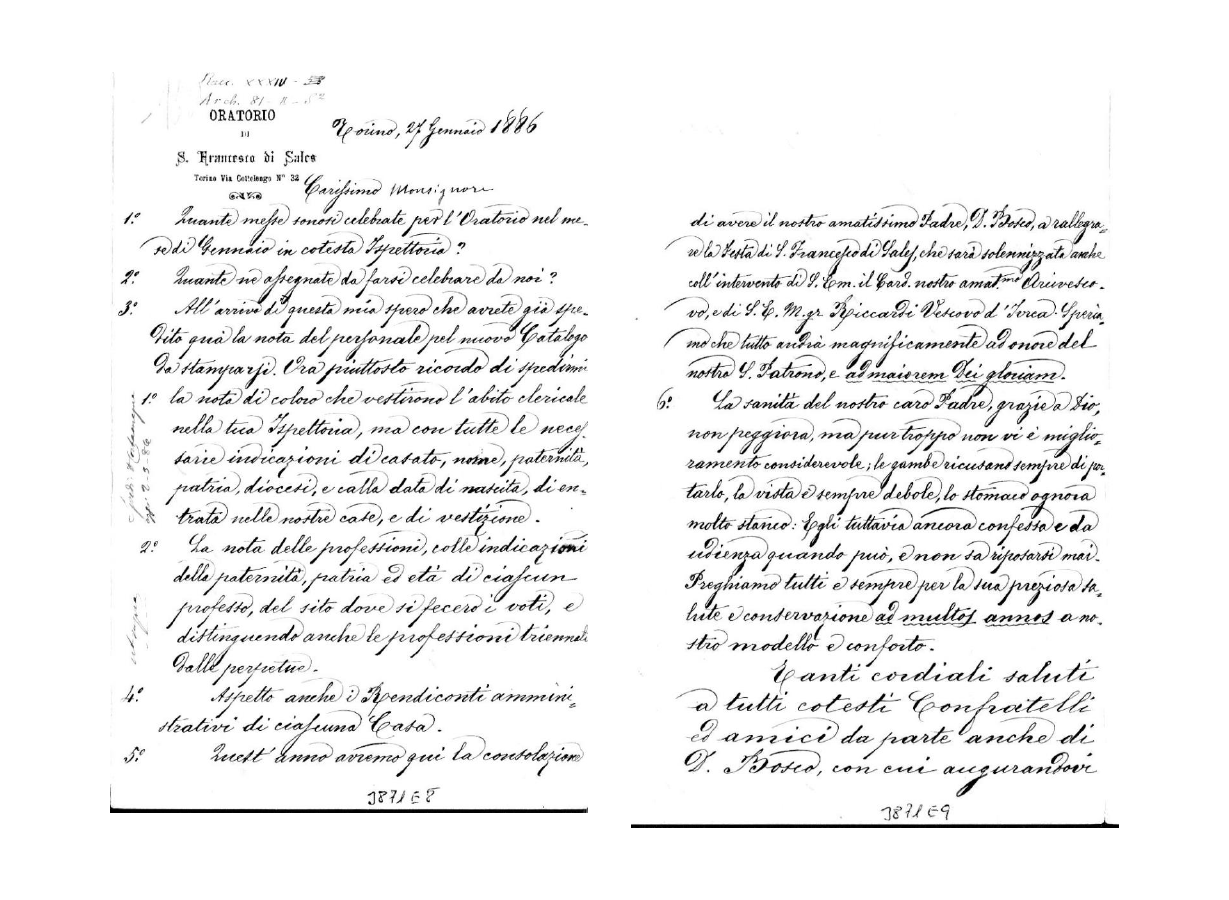 Arch. 81-
ORATORIO
DI
S. Francesco di Sales
Torino Via Cottolengo N° 32
Torino, 27 Gennaio 1886
Carissimo Monsignore
1.° Quante messe sonosi celebrate per l'Oratorio nel me-
se di Gennaio in cotesta Ispettoria?
2.° Quante ne assegnate da farsi celebrare da noi?
3.° All'arrivo di questa mia spero che avrete già spe-
dito quà la nota del personale pel nuovo Catalogo
da stamparsi. Ora piuttosto ricordo di spedirmi
1.° la nota di coloro che vestirono l'abito clericale
nella tua Ispettoria, ma con tutte le neces-
sarie indicazioni di casato, nome, paternità,
patria, diocesi, e colla data di nascita, di en-
trata nelle nostre case, e di vestizione.
2.° La nota delle professioni, colle indicazioni
della paternità, patria ed età di ciascun
professo, del sito dove si fecero i voti, e
distinguendo anche le professioni triennali
dalle perpetue.
4.° Aspetto anche i Rendiconti ammini-
strativi di ciascuna Casa.
5.° Quest'anno avremo qui la consolazione
J871E8
di avere il nostro amatissimo Padre, D. Bosco, a rallegra-
re la Festa di S. Francesco di Sales, che sarà solennizzata anche
coll'intervento di S. Em. il Card. nostro amat.mo Arcivesco-
vo, e di S. E. M.gr Riccardi Vescovo d'Ivrea. Speria-
mo che tutto andrà magnificamente ad onore del
nostro S. Patrono, e ad maiorem Dei gloriam.
6.° La sanità del nostro caro Padre, grazie a Dio,
non peggiora, ma pur troppo non vi è miglio-
ramento considerevole; le gambe ricusano sempre di por-
tarlo, la vista è sempre debole, lo stomaco ognora
molto stanco: Egli tuttavia ancora confessa e da
udienza quando può, e non sa riposarsi mai.
Preghiamo tutti e sempre per la sua preziosa sa-
lute e conservazione ad multos annos a no-
stro modello e conforto.
Tanti cordiali saluti
a tutti cotesti Confratelli
ed amici da parte anche di
D. Bosco, con cui augurandovi
J871E9